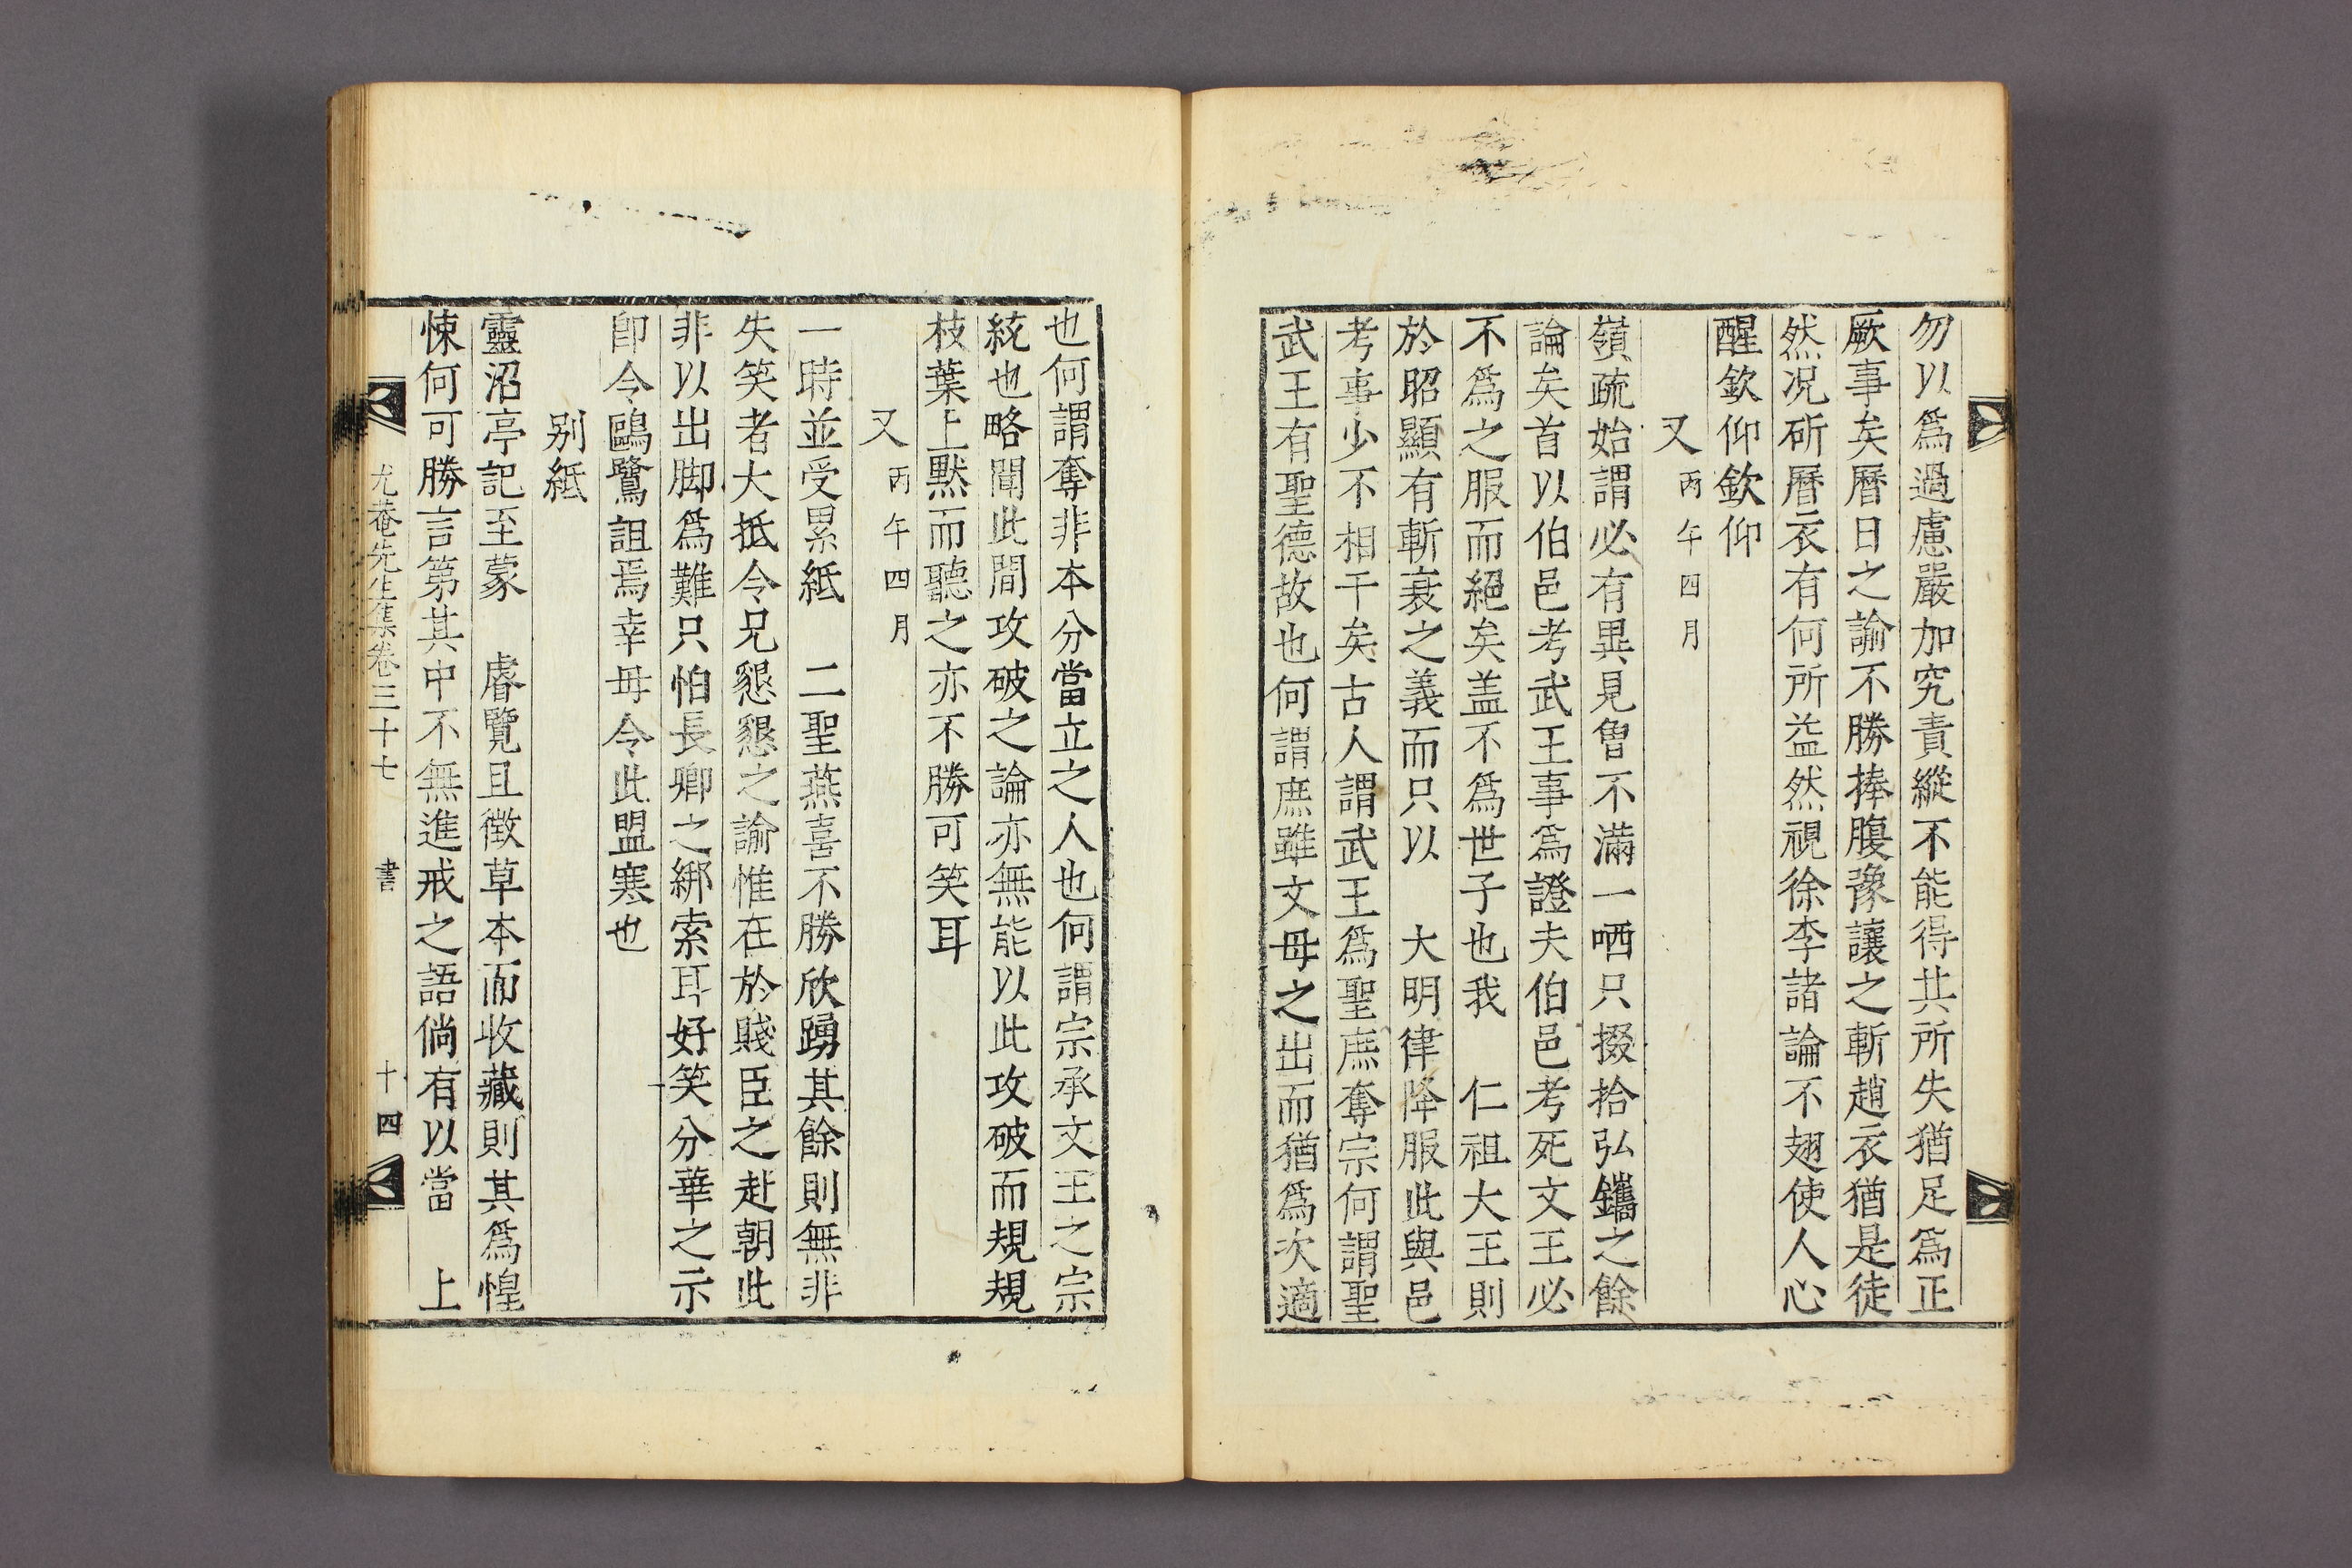 勿以爲過慮嚴加究責縱不能得其所失猶足爲正
厥事矣曆日之諭不勝捧腹豫讓之斬趙衣猶是徒
然况斫曆衣有何所益然視徐李諸論不翅使人心
醒欽仰欽仰
又丙午四月
嶺疏始謂必有異見曾不滿一哂只掇拾弘鑴之餘
論矣首以伯邑考武王事爲證夫伯邑考死文王必
不爲之服而絕矣盖不爲世子也我 仁祖大王則
於昭顯有斬衰之義而只以 大明律降服此與邑
考事少不相干矣古人謂武王爲聖庶奪宗何謂聖
武王有聖德故也何謂庶雖文母之出而猶爲次適
也何謂奪非本分當立之人也何謂宗承文王之宗
統也略聞此間攻破之論亦無能以此攻破而規規
枝葉上黙而聽之亦不勝可笑耳
又丙午四月
一時並受累紙 二聖燕喜不勝欣踴其餘則無非
失笑者大抵令兄懇懇之諭惟在於賤臣之赴朝此
非以出脚爲難只怕長卿之綁索耳好笑分華之示
卽令鷗鷺詛焉幸毋令此盟寒也
別紙
靈沼亭記至蒙 睿覽且徵草本而收藏則其爲惶
悚何可勝言第其中不無進戒之語倘有以當 上
尤菴先生集卷三十七 書 十四